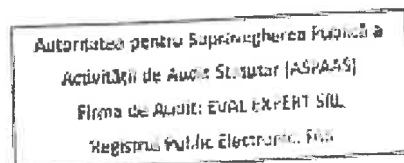 Autoritatea pentru Supravegherea Publică a
Activității de Audit Statutar (ASPAAS)
Firma de Audit: EVAL EXPERT SRL
Registrul Public Electronic: